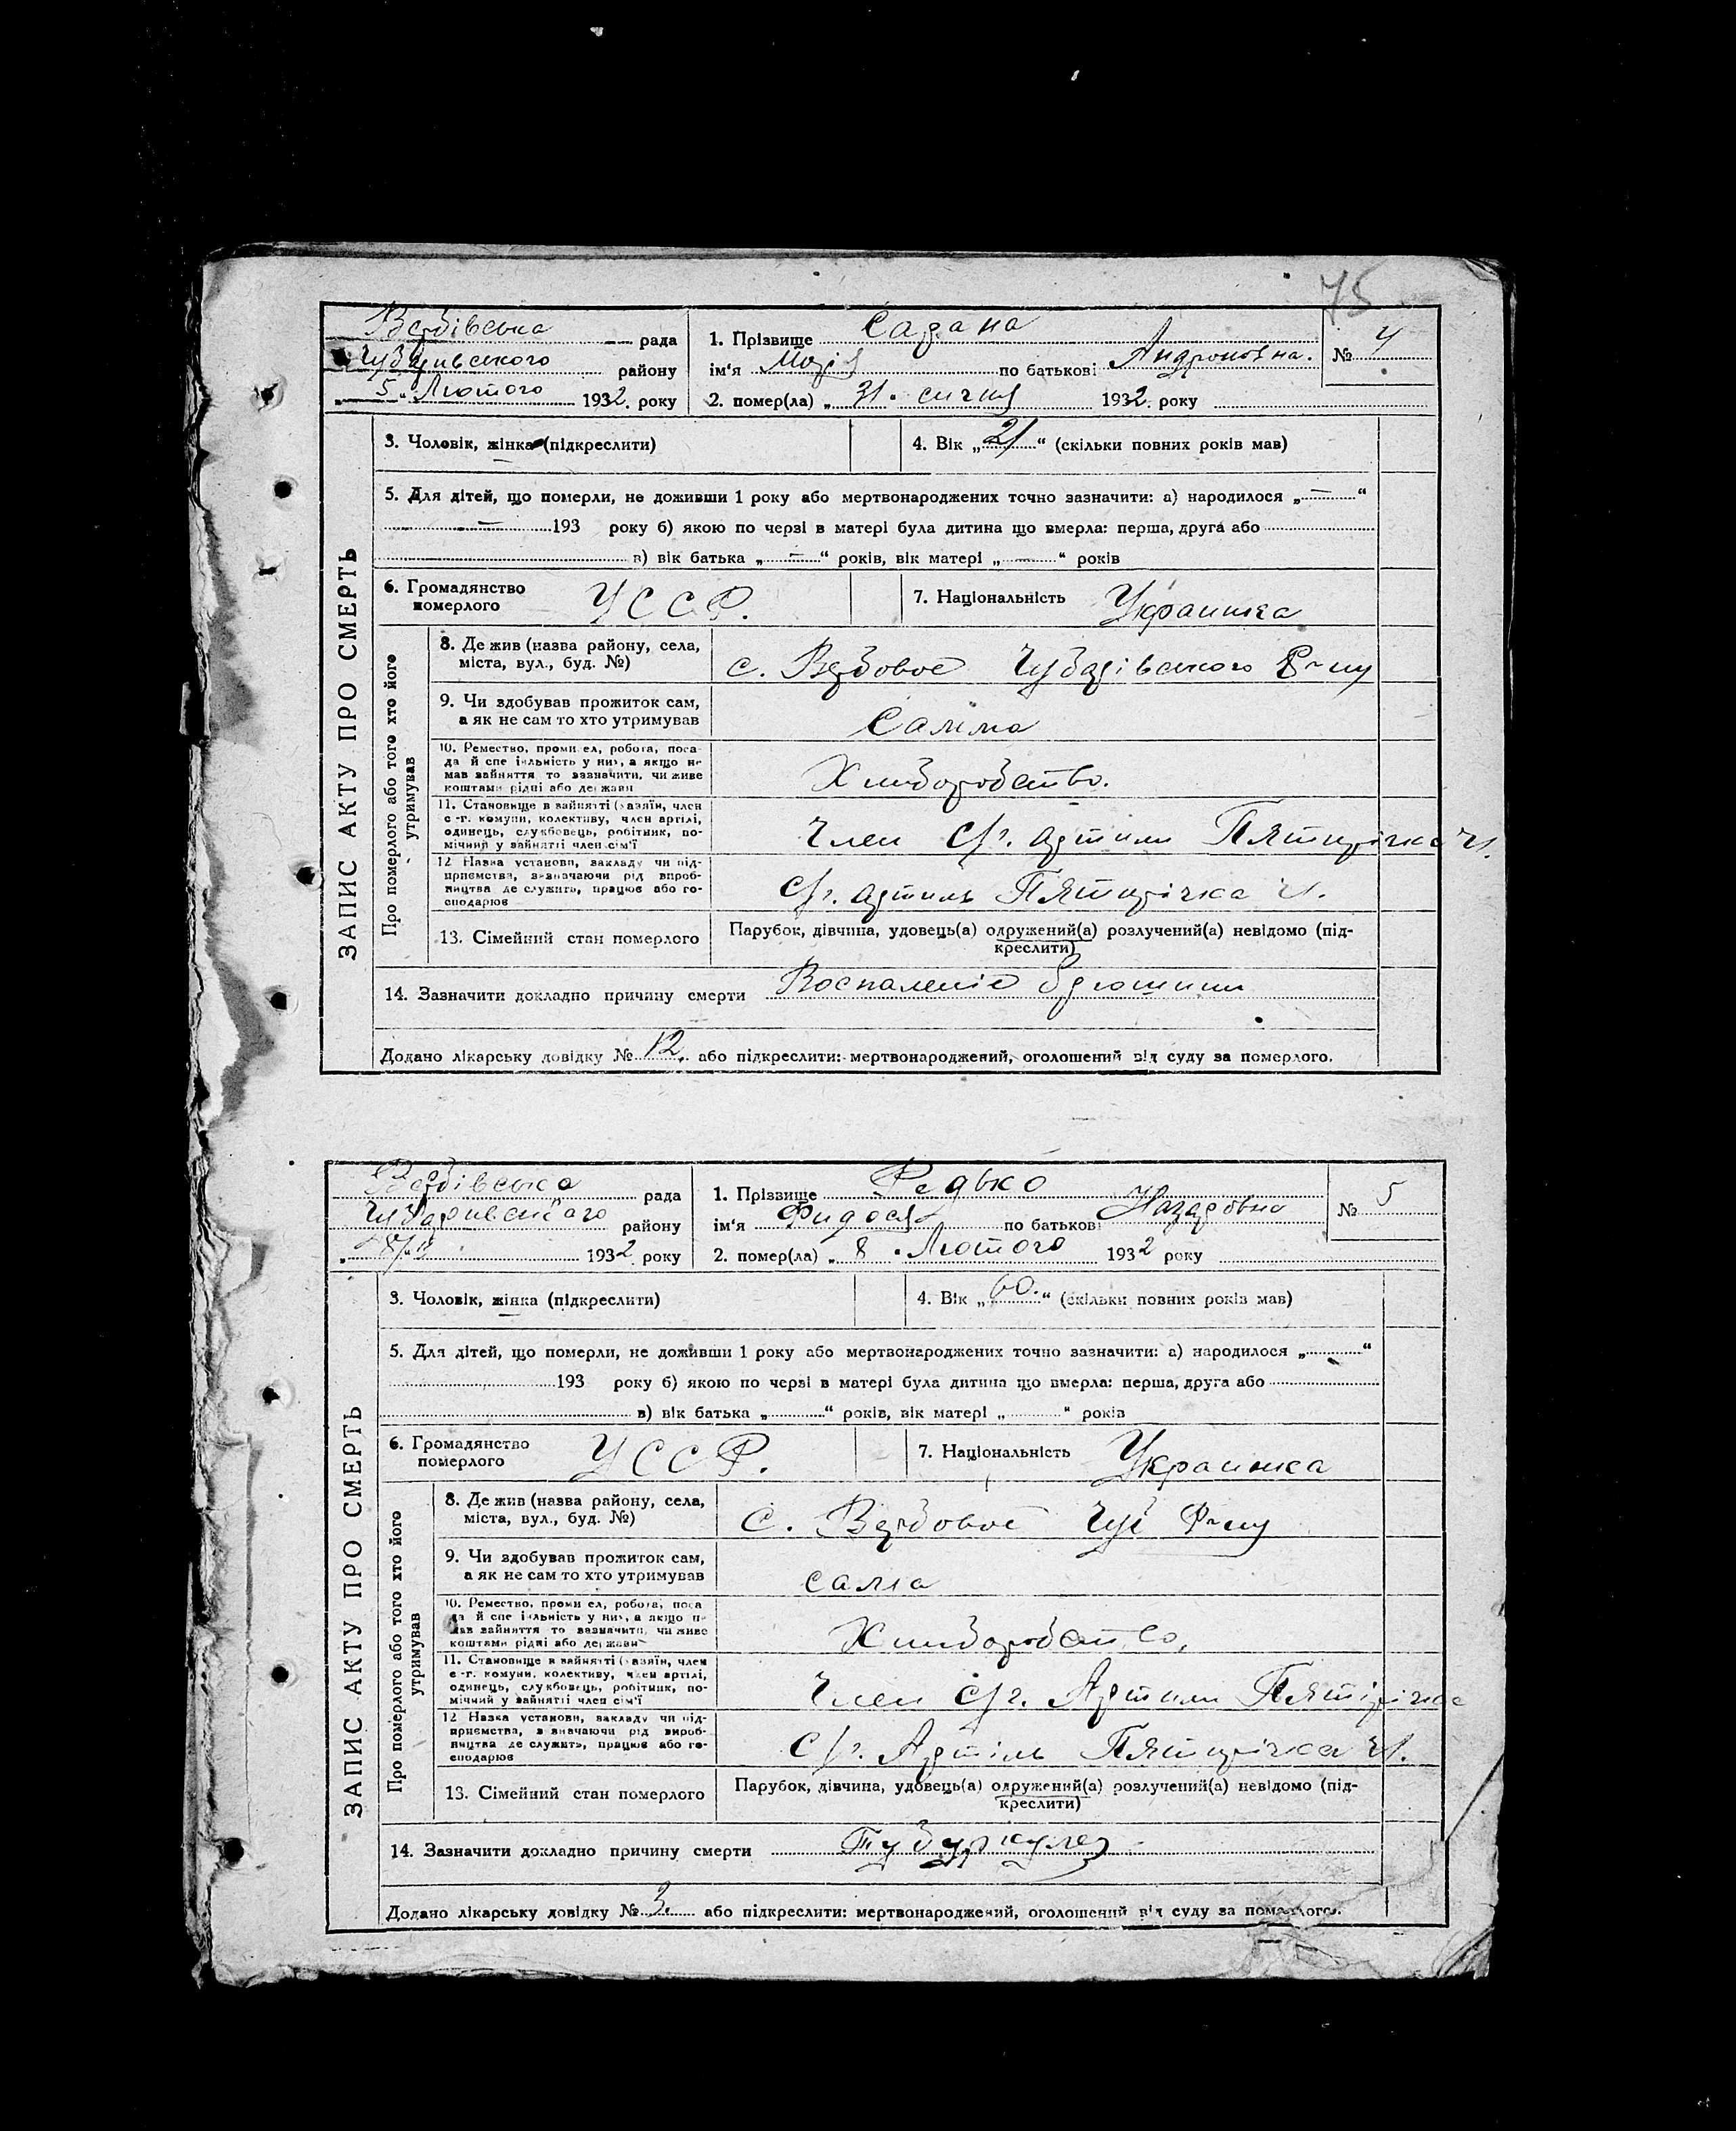 75
Вербівська рада
Чубарівського району
„ 5 „ Лютого 1932 року
1. Прізвище Садана
ім'я Марія по батькові Андроновна.
2. помер(ла) „ 31 " січня 1932 року
№ 4
ЗАПИС АКТУ ПРО СМЕРТЬ
3. Чоловік, жінка (підкреслити)
4. Вік „ 21 “ (скільки повних років мав)
5. Для дітей, що померли, не доживши 1 року або мертвонароджених точно зазначити: а) народилося „ — “
— 193 року б) якою по черзі в матері була дитина що вмерла: перша, друга або
в) вік батька „ — “ років, вік матері „ — “ років
6. Громадянство
померлого
УССР.
7. Національність Украинка
Про померлого або того хто його
утримував
8. Де жив (назва району, села,
міста, вул., буд. №)
с. Вербовое Чубарівського Р-ну
9. Чи здобував прожиток сам,
а як не сам то хто утримував
Сама
10. Ремество, промисел, робота, поса-
да й спеціяльність у них, а якщо не
мав зайняття то зазначити, чи живе
коштами рідні або держави
Хлиборобство.
11. Становище в зайнятті (хазяїн, член
с.-г. комуни, колективу, член артілі,
одинець, службовець, робітник, по-
мічний у зайнятті член сім'ї
Член С/г. артили Пятирічка
12 Назва установи, закладу чи під-
приємства, зазначаючи рід вироб-
ництва де служить, працює або го-
сподарює
С/г. артиль Пятирічка
13. Сімейний стан померлого
Парубок, дівчина, удовець(а) одружений(а) розлучений(а) невідомо (під-
креслити)
14. Зазначити докладно причину смерти Воспаленіе брюшини
Додано лікарську довідку № 12. або підкреслити: мертвонароджений, оголошений від суду за померлого.
Вербівська рада
Чубаривського району
1932 року
1. Прізвище Редько
ім'я Фидося по батькові Назаровна
2. помер(ла) „ 8 " Лютого 1932 року
№ 5
ЗАПИС АКТУ ПРО СМЕРТЬ
3. Чоловік, жінка (підкреслити)
4. Вік „ 60. “ (скільки повних років мав)
5. Для дітей, що померли, не доживши 1 року або мертвонароджених точно зазначити: а) народилося „ “
193 року б) якою по черзі в матері була дитина що вмерла: перша, друга або
в) вік батька „ “ років, вік матері „ “ років
6. Громадянство
померлого
УССР.
7. Національність Украинка
Про померлого або того хто його
утримував
8. Де жив (назва району, села,
міста, вул., буд. №)
С. Вербовое Чуб Р-ну
9. Чи здобував прожиток сам,
а як не сам то хто утримував
сама
10. Ремество, промисел, робота, поса
да й спеціяльність у них, а якщо не
мав зайняття то зазначити, чи живе
коштами рідні або держави
Хлиборобство,
11. Становище в зайнятті (хазяїн, член
с.-г. комуни, колективу, член артілі,
одинець, службовець, робітник, по-
мічний у зайнятті член сім'ї
Член С/г. Артили Пятірічка
12 Назва установи, закладу чи під-
приємства, зазначаючи рід вироб-
ництва де служить, працює або го-
сподарює
С/г. Артіль Пятирічка
13. Сімейний стан померлого
Парубок, дівчина, удовець(а) одружений(а) розлучений(а) невідомо (під-
креслити)
14. Зазначити докладно причину смерти Тубуркулез
Додано лікарську довідку № 3. або підкреслити: мертвонароджений, оголошений від суду за померлого.